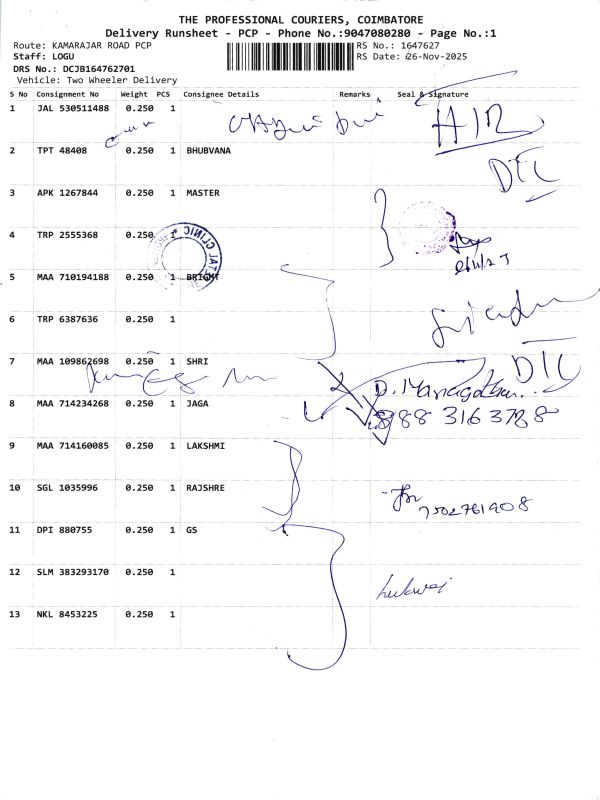 THE PROFESSIONAL COURIERS, COIMBATORE
Delivery Runsheet - PCP - Phone No.:9047080280 - Page No.:1
Route: KAMARAJAR ROAD PCP RS No.: 1647627
Staff: LOGU RS Date: 26-Nov-2025
DRS No.: DCJB164762701
Vehicle: Two Wheeler Delivery
S No Consignment No Weight PCS Consignee Details Remarks Seal & Signature
1 JAL 530511488 0.250 1
2 TPT 48408 0.250 1 BHUBVANA
3 APK 1267844 0.250 1 MASTER
4 TRP 2555368 0.250 1
CLINIC
5 MAA 710194188 0.250 1 BRIGHT
6 TRP 6387636 0.250 1
7 MAA 109862698 0.250 1 SHRI
8 MAA 714234268 0.250 1 JAGA
9 MAA 714160085 0.250 1 LAKSHMI
10 SGL 1035996 0.250 1 RAJSHRE
7502761908
11 DPI 880755 0.250 1 GS
12 SLM 383293170 0.250 1
13 NKL 8453225 0.250 1